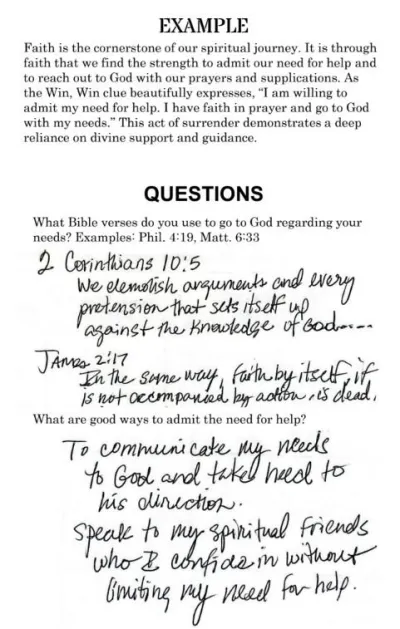 EXAMPLE
Faith is the cornerstone of our spiritual journey. It is through
faith that we find the strength to admit our need for help and
to reach out to God with our prayers and supplications. As
the Win, Win clue beautifully expresses, “I am willing to
admit my need for help. I have faith in prayer and go to God
with my needs.” This act of surrender demonstrates a deep
reliance on divine support and guidance.
QUESTIONS
What Bible verses do you use to go to God regarding your
needs? Examples: Phil. 4:19, Matt. 6:33
2 Corinthians 10:5
We demolish arguments and every
pretension that sets itself up
against the knowledge of God.....
James 2:17
In the same way, faith by itself, if
is not accompanied by action, is dead.
What are good ways to admit the need for help?
To communicate my needs
to God and take heed to
his direction.
Speak to my spiritual friends
who I confide in without
limiting my need for help.